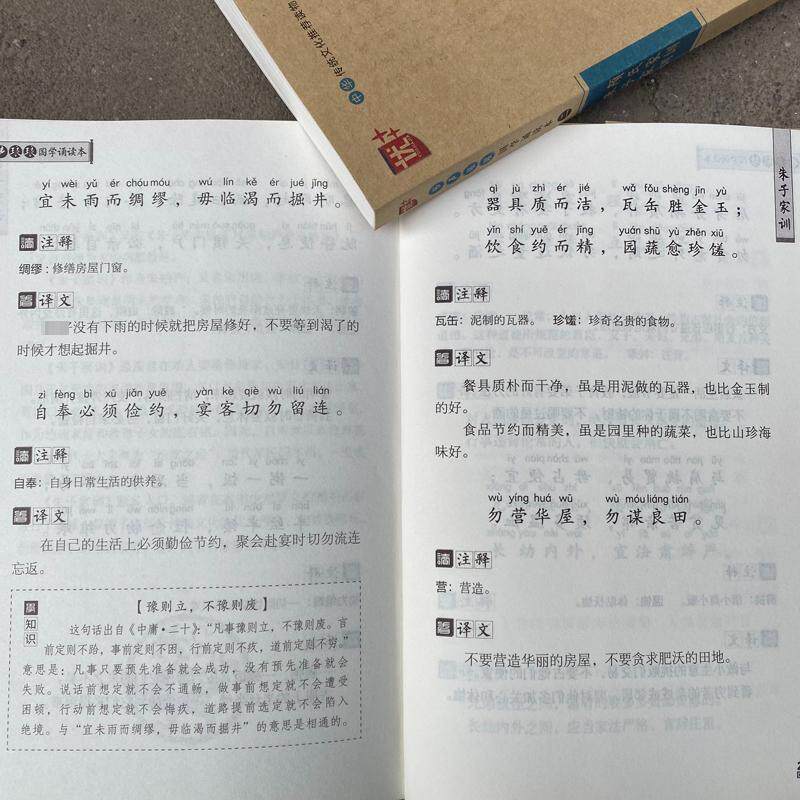 中华传统文化推荐读物
国学诵读本
国学诵读本
yí wèi yǔ ér chóu móu wú lín kě ér jué jǐng
宜未雨而绸缪，毋临渴而掘井。
注释
绸缪：修缮房屋门窗。
译文
没有下雨的时候就把房屋修好，不要等到渴了的
时候才想起掘井。
zì fèng bì xū jiǎn yuē yàn kè qiè wù liú lián
自奉必须俭约，宴客切勿留连。
注释
自奉：自身日常生活的供养。
译文
在自己的生活上必须勤俭节约，聚会赴宴时切勿流连
忘返。
知识
【豫则立，不豫则废】
这句话出自《中庸·二十》：“凡事豫则立，不豫则废。言
前定则不跲，事前定则不困，行前定则不疚，道前定则不穷。”
意思是：凡事只要预先准备就会成功，没有预先准备就会
失败。说话前想定就不会不通畅，做事前想定就不会遭受
困顿，行动前想定就不会悔疚，道路提前选定就不会陷入
绝境。与“宜未雨而绸缪，毋临渴而掘井”的意思是相通的。
朱子家训
qì jù zhì ér jié wǎ fǒu shèng jīn yù
器具质而洁，瓦缶胜金玉；
yǐn shí yuē ér jīng yuán shū yù zhēn xiū
饮食约而精，园蔬愈珍馐。
注释
瓦缶：泥制的瓦器。 珍馐：珍奇名贵的食物。
译文
餐具质朴而干净，虽是用泥做的瓦器，也比金玉制
的好。
食品节约而精美，虽是园里种的蔬菜，也比山珍海
味好。
wù yíng huá wū wù móu liáng tián
勿营华屋，勿谋良田。
注释
营：营造。
译文
不要营造华丽的房屋，不要贪求肥沃的田地。